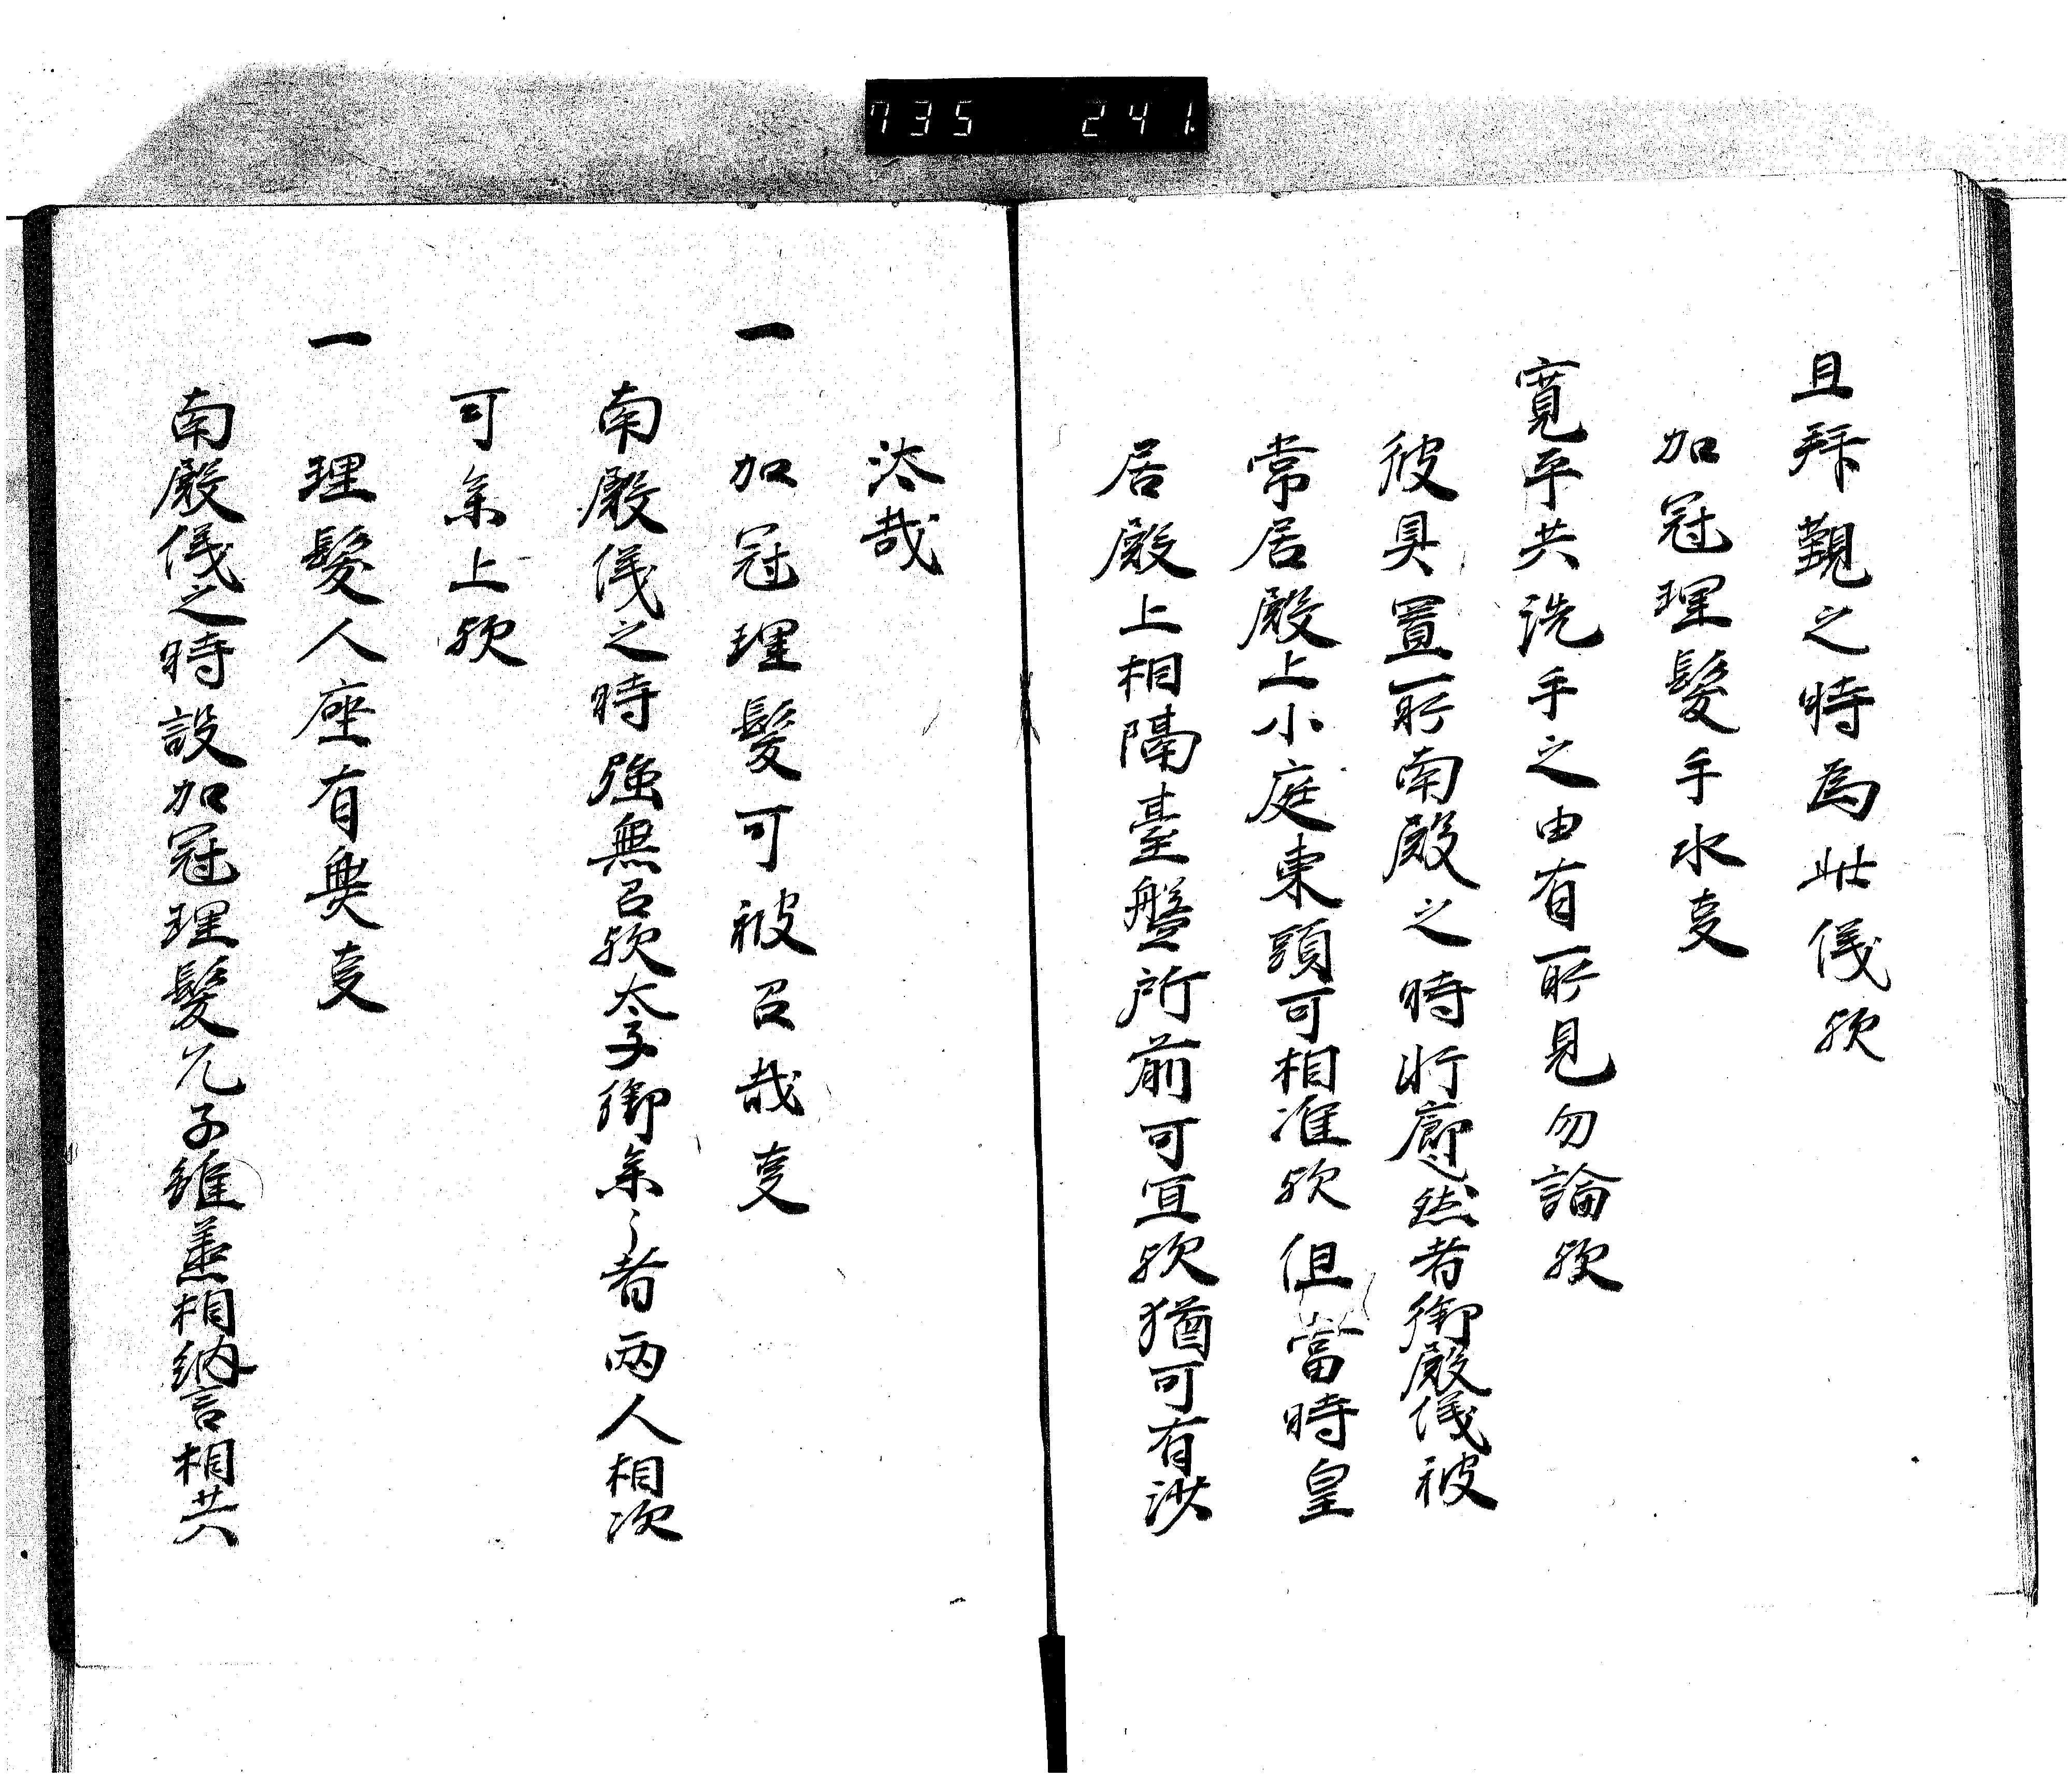 735 241.
且拜覲之時為此儀欤
加冠理髪手水事
寛平共洗手之由有所見勿論欤
彼具置所南殿之時行廊然者御殿儀被
常居殿上小庭東頭可相准欤但當時皇
居殿上相隔臺盤所前可宜欤猶可有沙
汰哉
一 加冠理髪可被召哉事
南殿儀之時強無召欤太子御参々者両人相次
可参上欤
一 理髪人座有無事
南殿儀之時設加冠理髪兀子雖相納言相共